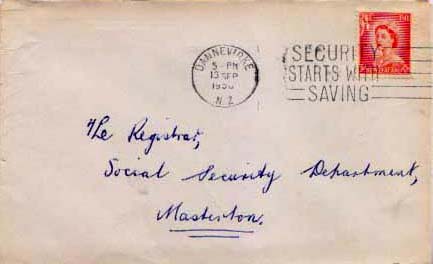 DANNEVIRKE
5 - PM
13 SEP
N.Z
SECURITY
STARTS WITH
SAVING
The Registrar,
Social Security Department,
Masterton.